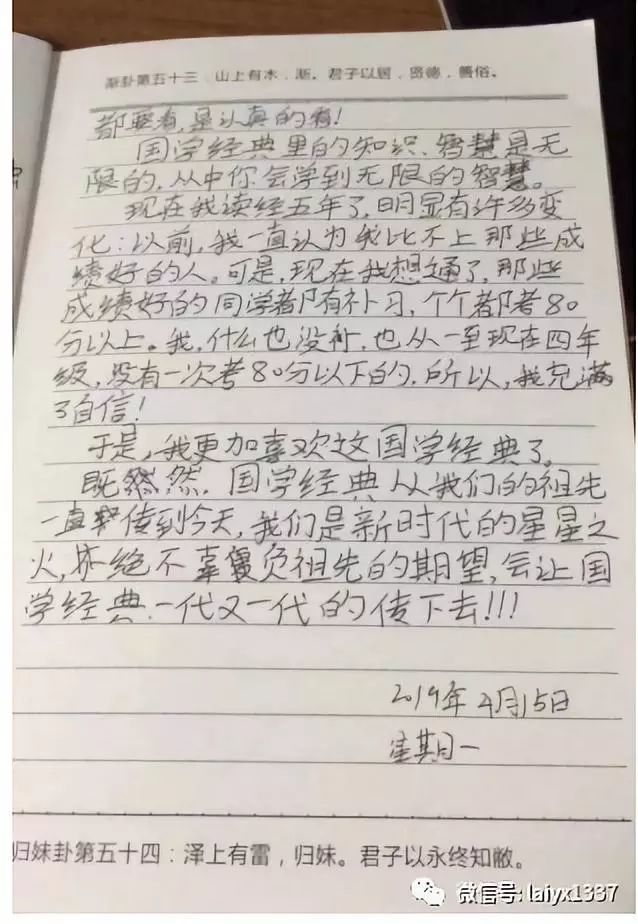 渐卦第五十三：山上有木，渐。君子以居，贤德，善俗。
都要看,是认真的看！
国学经典里的知识、智慧是无
限的，从中你会学到无限的智慧。
现在我读经五年了，明显有许多变
化：以前，我一直认为我比不上那些成
绩好的人。可是，现在我想通了，那些
成绩好的同学都有补习，个个都考80
分以上。我，什么也没补，也从一至现在四年
级，没有一次考80分以下的，所以，我充满
了自信！
于是，我更加喜欢这国学经典了。
既然，国学经典从我们的祖先
一直传到今天，我们是新时代的星星之
火，绝不辜负祖先的期望，会让国
学经典一代又一代的传下去！！！
2019年4月15日
星期一
归妹卦第五十四：泽上有雷，归妹。君子以永终知敝。
微信号: laiyx1337